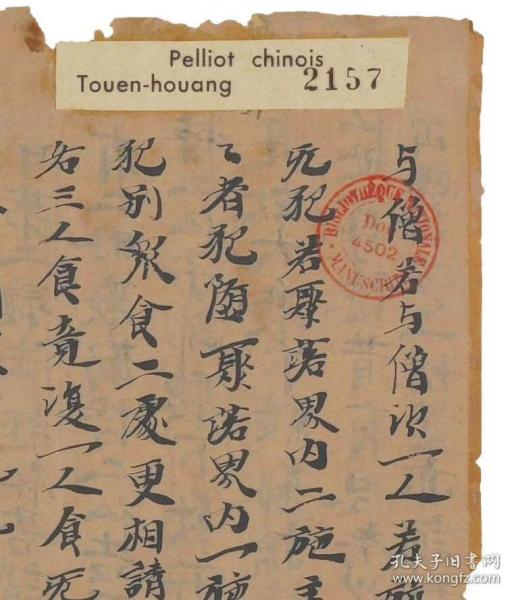 Pelliot chinois
Touen-houang 2157
与僧若与僧次一人若
无犯若聚落界内二施主
者犯堕聚落界内一施
犯别众食二處更相請
若三人食竟復一人食无
BIBLIOTHÈQUE NATIONALE
Don
4502
MANUSCRITS
孔夫子旧书网
www.kongfz.com